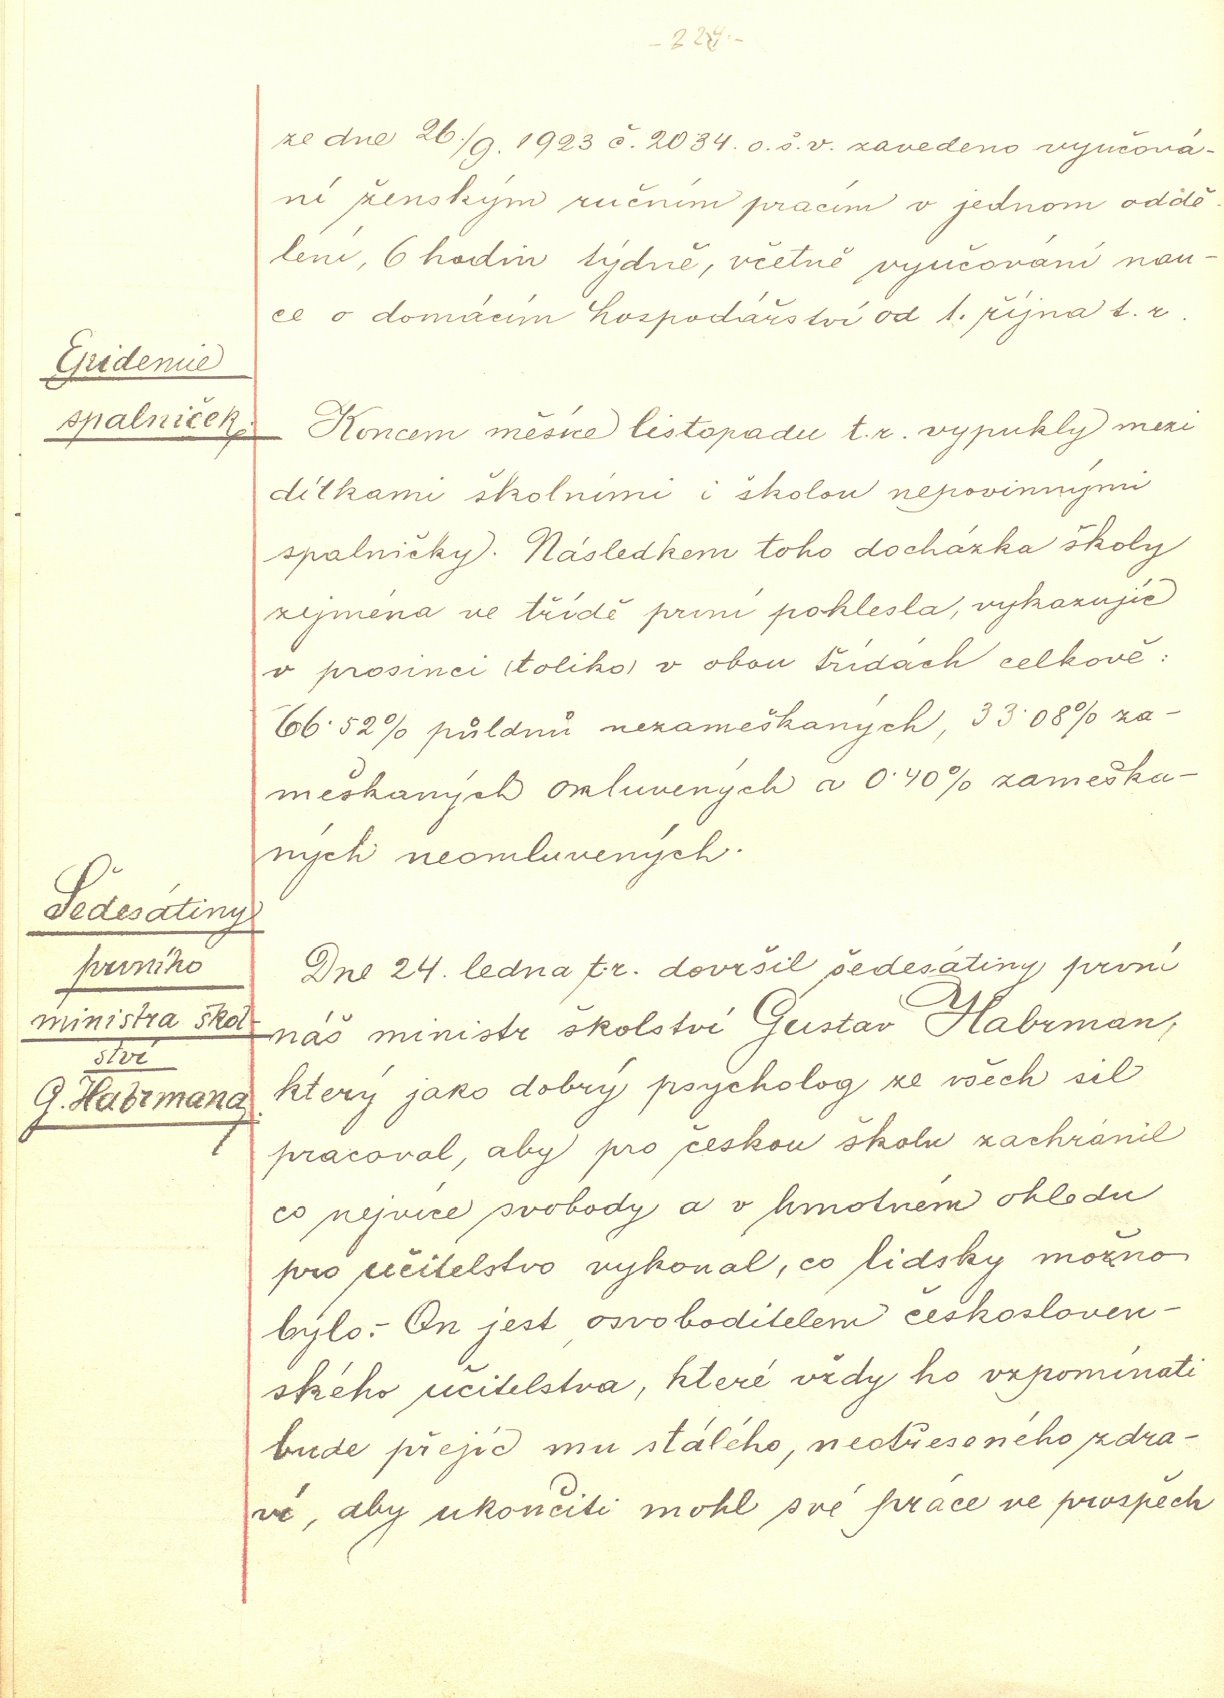 ze dne 26./9. 1923 č. 2034. o.š.v. zavedeno vyučová-
ní ženským ručním pracím v jednom oddě-
lení, 6 hodin týdně, včetně vyučování nau-
ce o domácím hospodářství od 1. října t. r.
Epidemie
spalniček.
Koncem měsíce listopadu t. r. vypukly mezi
dítkami školními i školou nepovinnými
spalničky. Následkem toho docházka školy
zejména ve třídě první poklesla, vykazujíc
v prosinci (toliko) v obou třídách celkově:
66·52% půldnů nezameškaných, 33·08% za-
meškaných omluvených a 0·40% zameška-
ných neomluvených.
Šedesátiny
prvního
ministra škol-
ství
G. Habrmana
Dne 24. ledna t.r. dovršil šedesátiny první
náš ministr školství Gustav Habrman,
který jako dobrý psycholog ze všech sil
pracoval, aby pro českou školu zachránil
co nejvíce svobody a v hmotném ohledu
pro učitelstvo vykonal, co lidsky možno
bylo.- On jest osvoboditelem českosloven-
ského učitelstva, které vždy ho vzpomínati
bude přejíc mu stálého, neotřeseného zdra-
ví, aby ukončiti mohl své práce ve prospěch